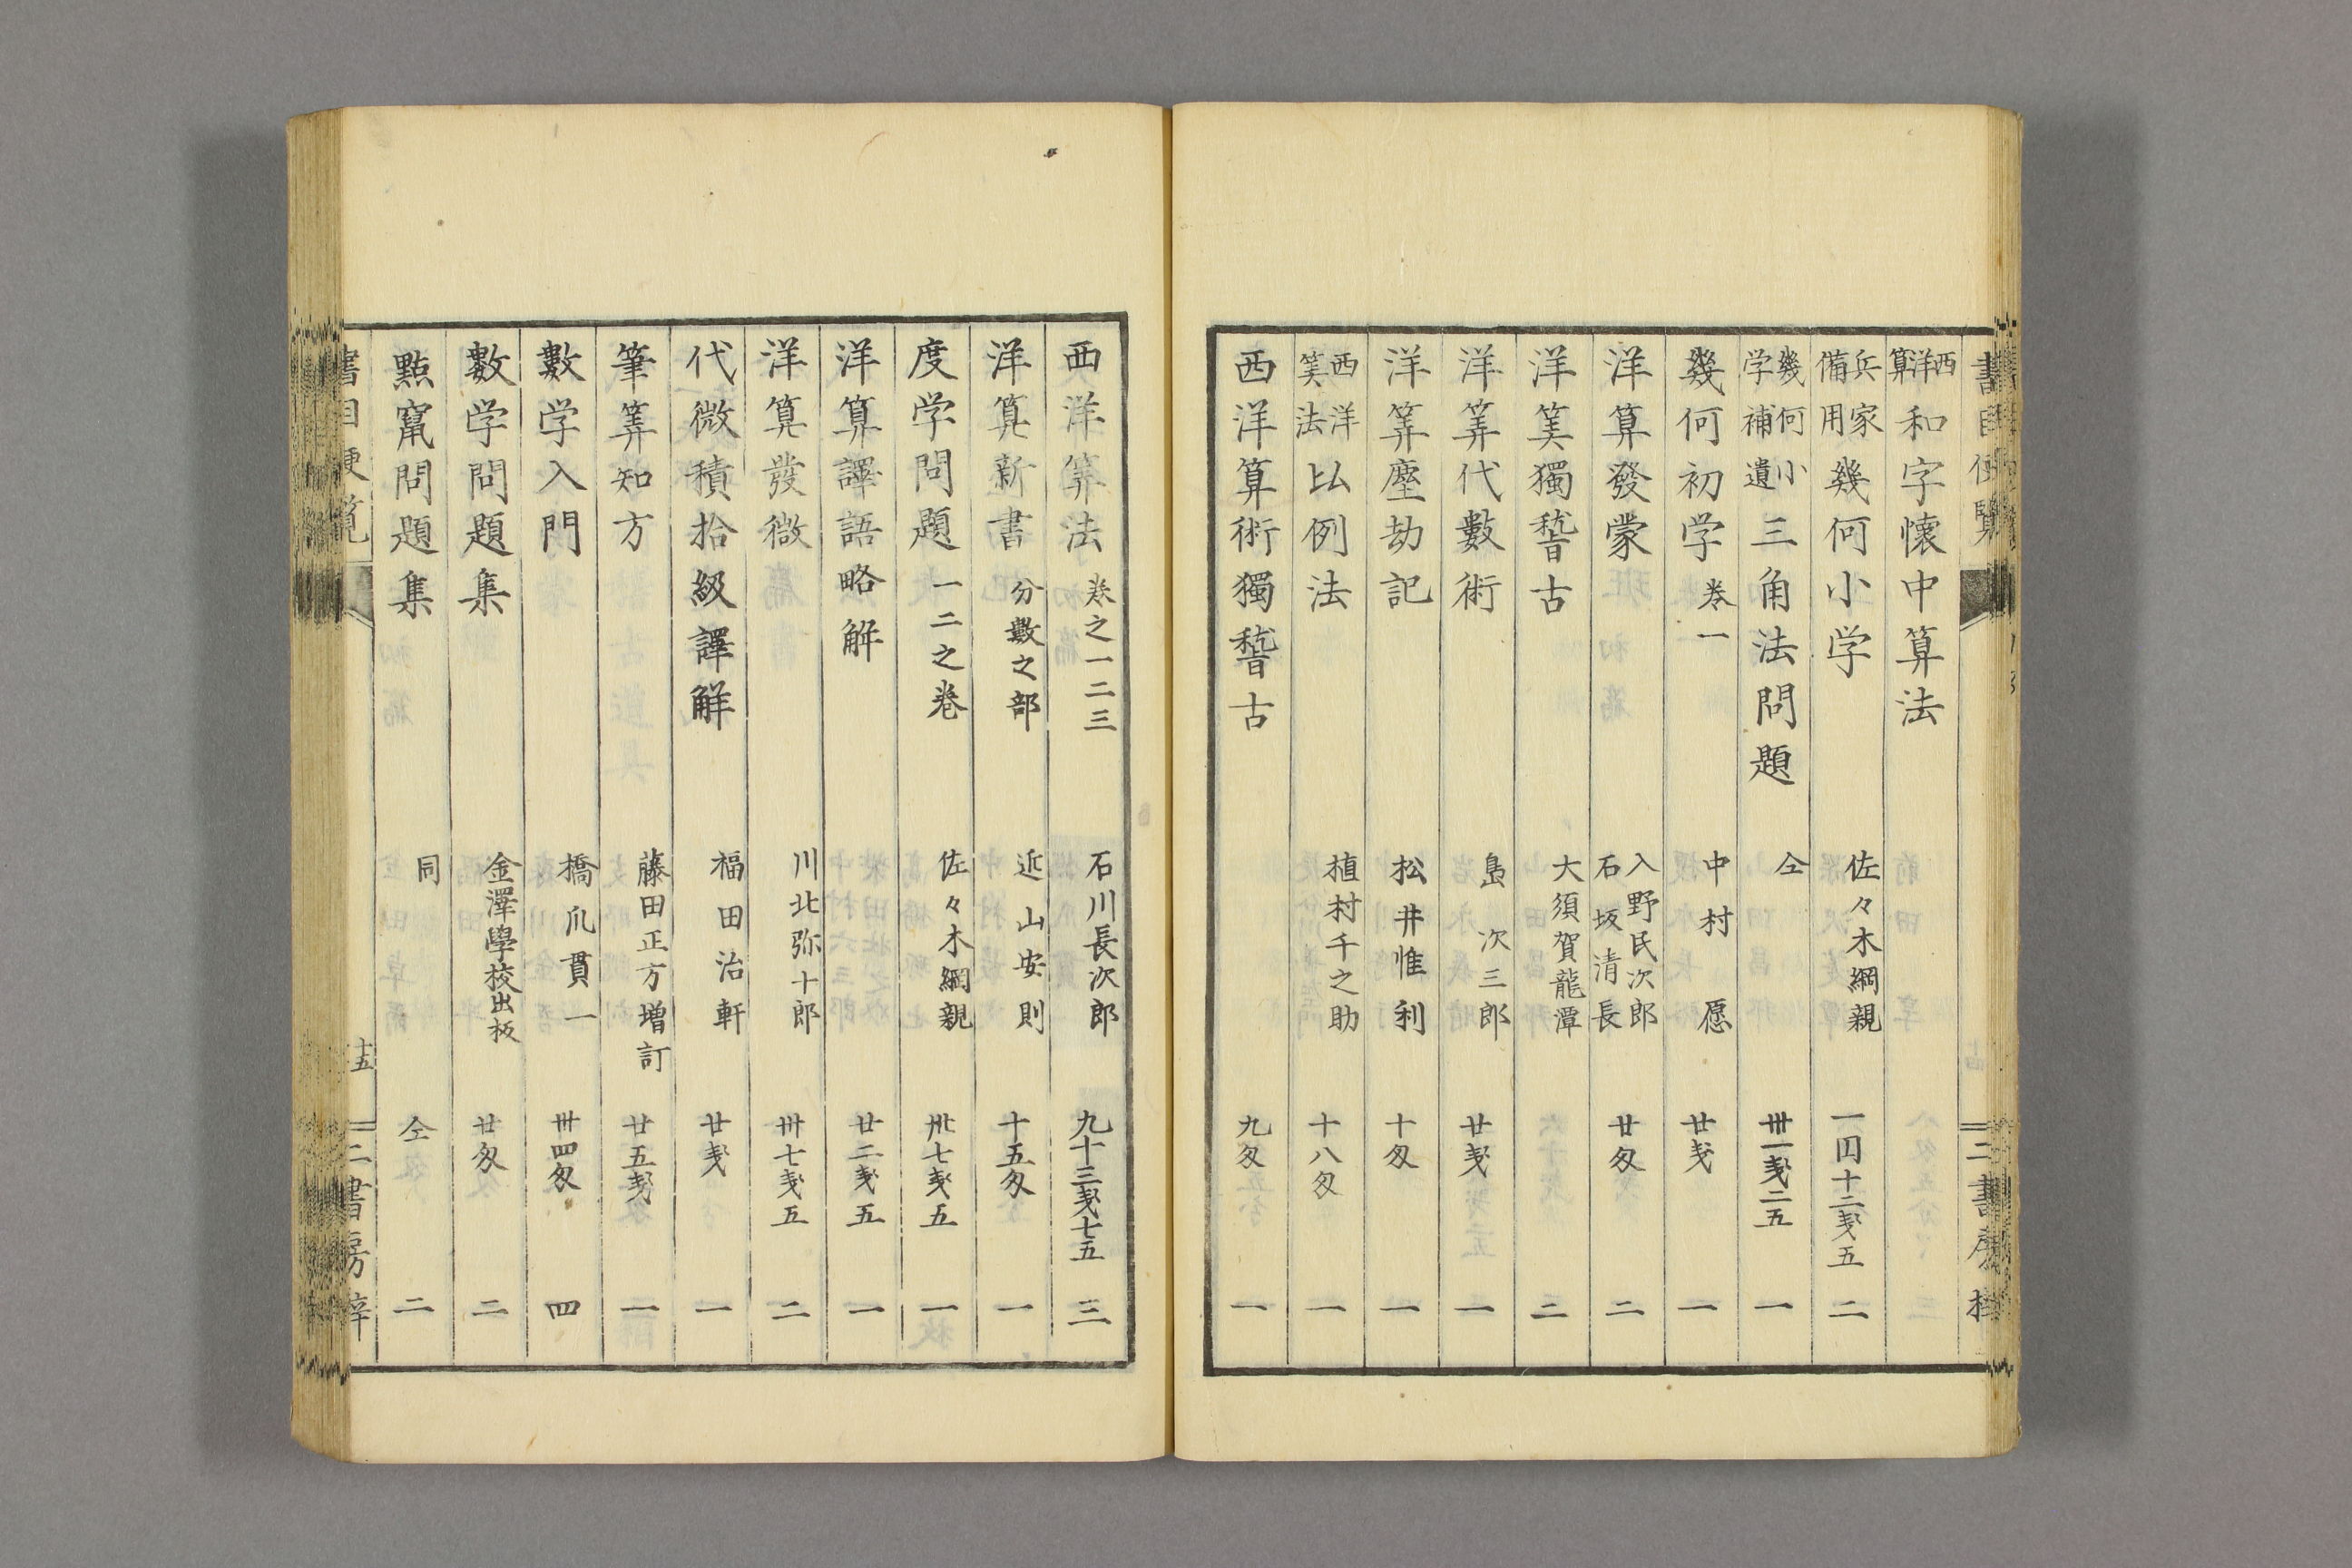 書目便覧
西洋算 和字懷中算法
兵家備用 幾何小学 佐々木綱親 一円十二匁五 二
幾何小学補遺 三角法問題 仝 卅一匁二五 一
幾何初学 巻一 中村愿 廿匁 一
洋算發蒙 入野民次郎 石坂清長 廿匁 二
洋筭獨稽古 大須賀龍潭 二
洋筭代數術 島次三郎 廿匁 一
洋筭塵劫記 松井惟利 十匁 一
西洋筭法 比例法 植村千之助 十八匁 一
西洋算術獨稽古 九匁 一
二書房梓
西洋筭法 巻之一二三 石川長次郎 九十三匁七五 三
洋算新書 分數之部 近山安則 十五匁 一
度学問題 一二之巻 佐々木綱親 卅七匁五 一
洋算譯語略解 廿二匁五 一
洋算發微 川北弥十郎 卅七匁五 二
代微積拾級譯解 福田治軒 廿匁 一
筆筭知方 藤田正方增訂 廿五匁 一
數学入門 橋爪貫一 卅四匁 四
數学問題集 金澤學校出板 廿匁 二
點竄問題集 同 仝 二
書目便覧 十五 二書房梓